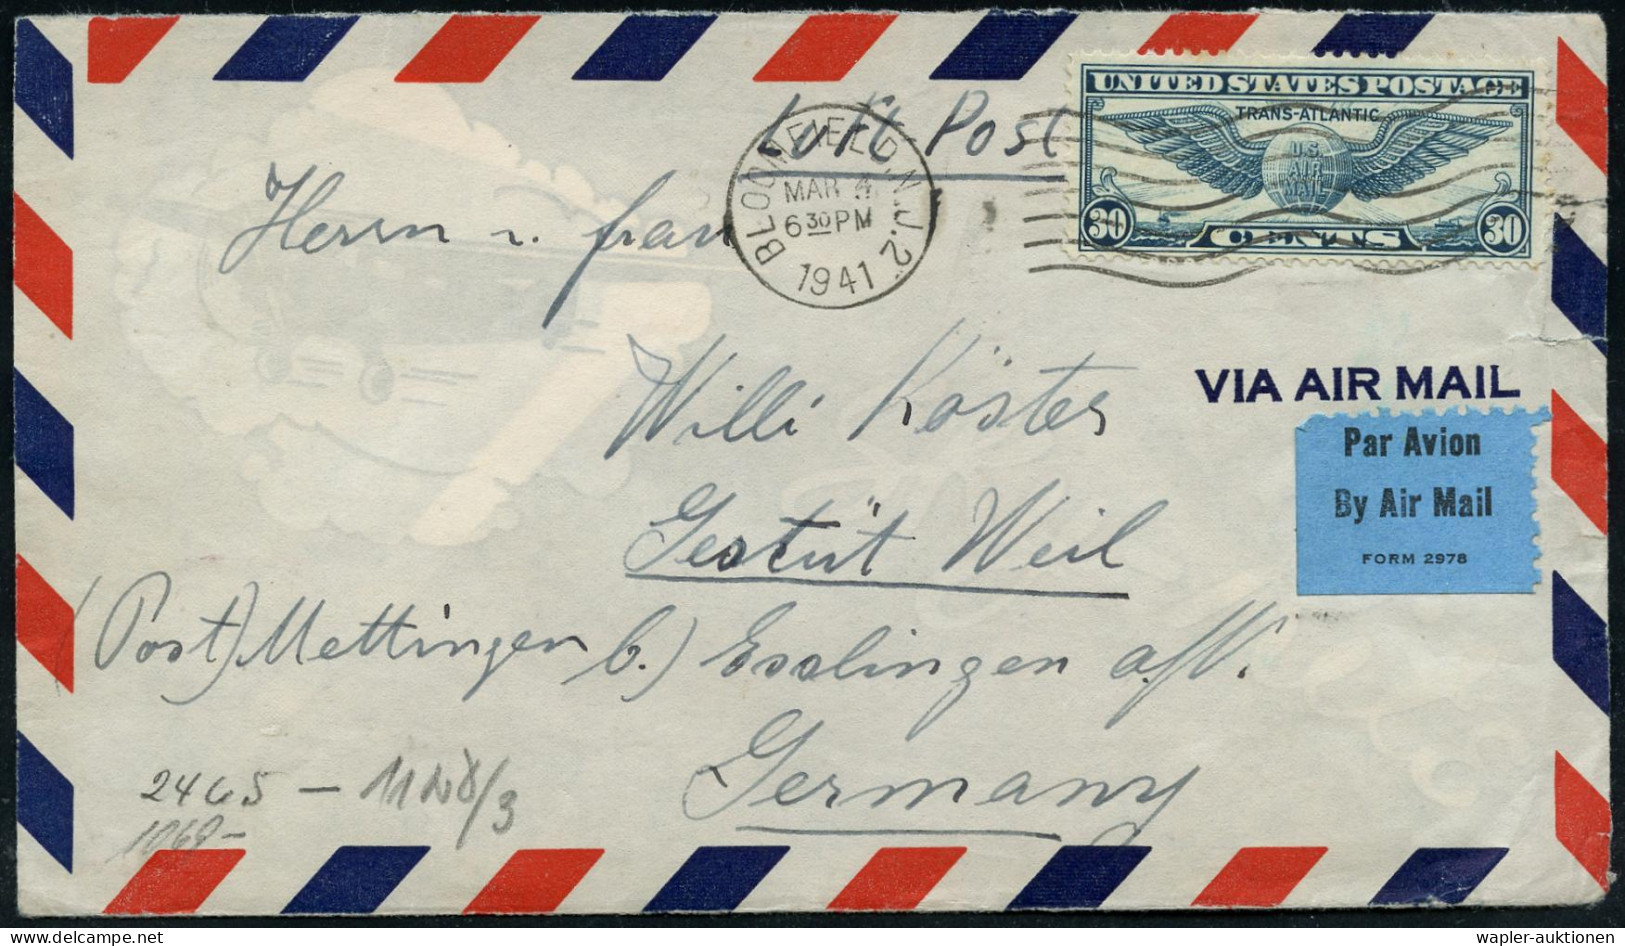 Luft Post
UNITED STATES POSTAGE
TRANS-ATLANTIC
U.S.
AIR
MAIL
30 CENTS 30
BLOOMFIELD, N.J. 2
MAR 4
6 30 PM
1941
Herrn u. frau
Willi Köster
VIA AIR MAIL
Par Avion
By Air Mail
FORM 2978
Gestüt Weil
(Post) Mettingen b.) Esslingen a/N.
Germany
2465 –
1060 –
wapler-auktionen